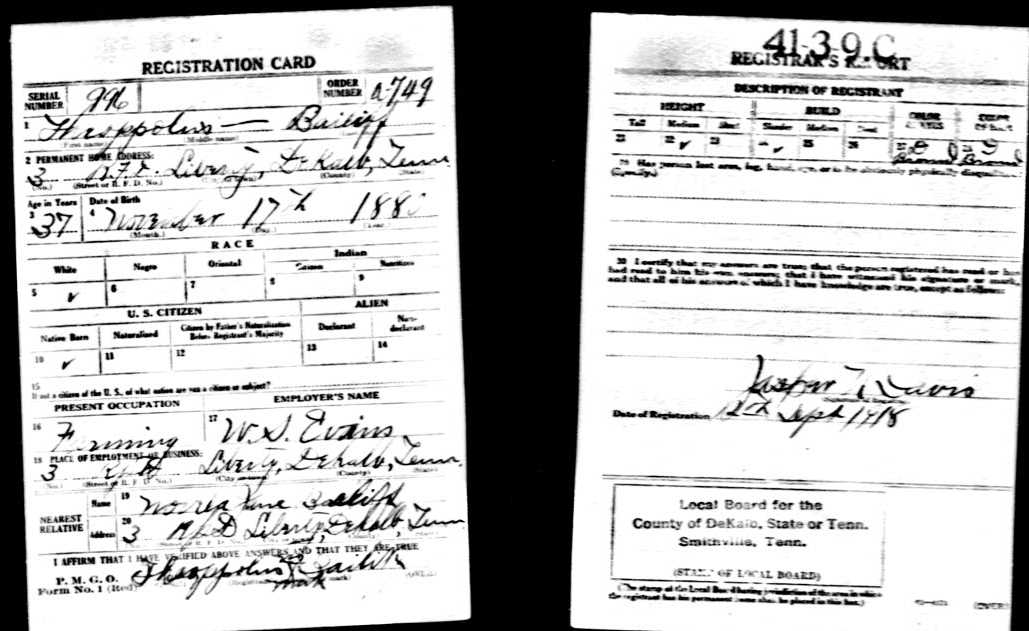 REGISTRATION CARD
SERIAL NUMBER 996 ORDER NUMBER a749
1 Theoppolus — Bailiff
(First name) (Middle name)
2 PERMANENT HOME ADDRESS:
3 Liberty, DeKalb, Tenn
(No.) (Street or R. F. D. No.) (County) (State)
Age in Years Date of Birth
3 37 4 November 17th 1880
(Month.) (Day.) (Year.)
RACE
White Negro Oriental Indian
Citizen Noncitizen
5 ✓ 6 7 8 9
U. S. CITIZEN ALIEN
Native Born Naturalized Citizen by Father's Naturalization Before Registrant's Majority Declarant Non-declarant
10 ✓ 11 12 13 14
15
If not a citizen of the U. S., of what nation are you a citizen or subject?
PRESENT OCCUPATION EMPLOYER'S NAME
16 Farming 17 W. S. Evans
18 PLACE OF EMPLOYMENT OR BUSINESS:
3 Liberty, Dekalb, Tenn.
(No.) (Street or R. F. D. No.) (City or town) (County) (State)
NEAREST RELATIVE Name 19 Bailiff
Address 20 3 Liberty Dekalb Tenn
I AFFIRM THAT I HAVE VERIFIED ABOVE ANSWERS AND THAT THEY ARE TRUE
P. M. G. O.
Form No. 1 (Red) Theoppolus Bailiff
mark (OVER)
41-3-9. C
REGISTRAR'S REPORT
DESCRIPTION OF REGISTRANT
HEIGHT BUILD COLOR OF EYES COLOR OF HAIR
Tall Medium Short Slender Medium Stout
21 22 ✓ 23 24 ✓ 25 26 27 Brown 28 Brown
29 Has person lost arm, leg, hand, eye, or is he obviously physically disqualified?
(Specify.)
30 I certify that my answers are true; that the person registered has read or has
had read to him his own answers; that I have witnessed his signature or mark,
and that all of his answers of which I have knowledge are true, except as follows:
Davis
(Signature of Registrar)
Date of Registration 12th Sept 1918
Local Board for the
County of DeKalb, State of Tenn.
Smithville, Tenn.
(STAMP OF LOCAL BOARD)
(The stamp of the Local Board having jurisdiction of the area in which
the registrant has his permanent home shall be placed in this box.)
(OVER)